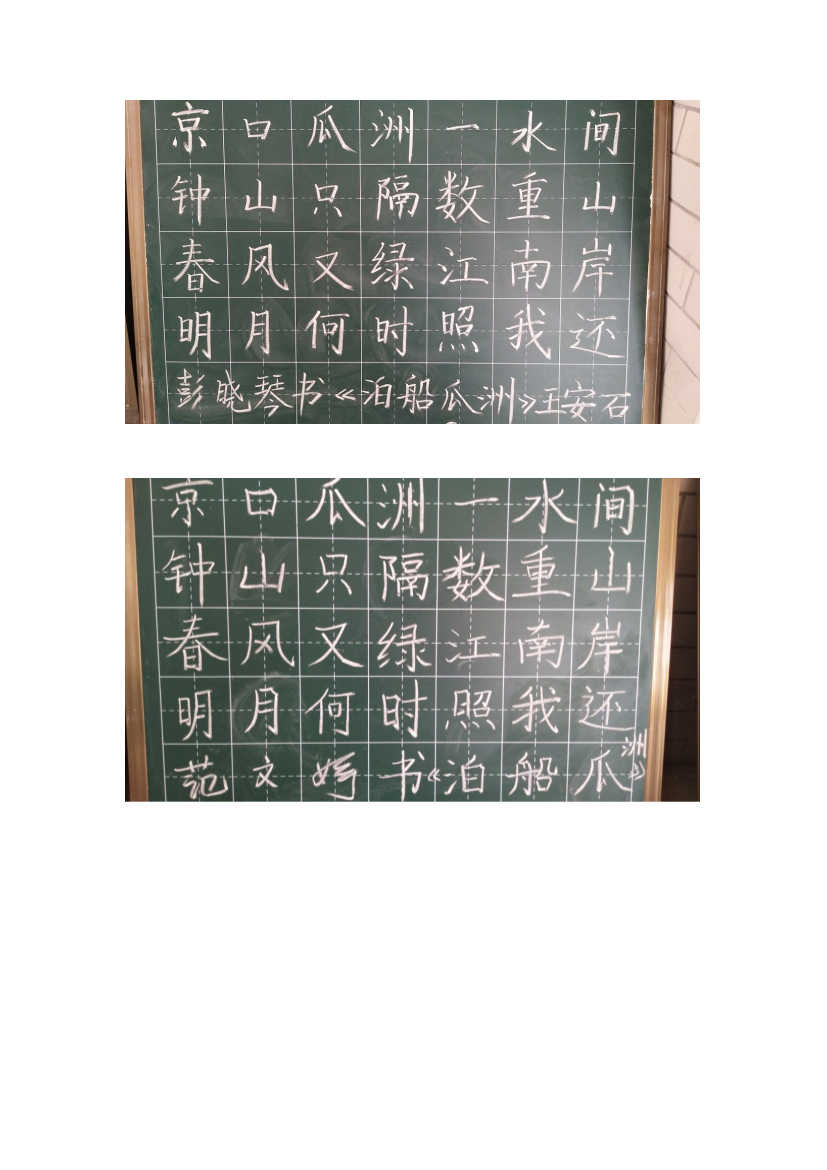 京口瓜洲一水间
钟山只隔数重山
春风又绿江南岸
明月何时照我还
彭晓琴书《泊船瓜洲》王安石
京口瓜洲一水间
钟山只隔数重山
春风又绿江南岸
明月何时照我还
范文婷书《泊船瓜洲》